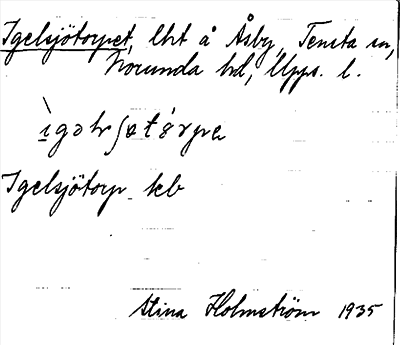 Igelsjötorpet, lht å Åsby, Tensta sn,
Norunda hd, Upps. l.
Igelsjötorp kb
Stina Holmström 1935